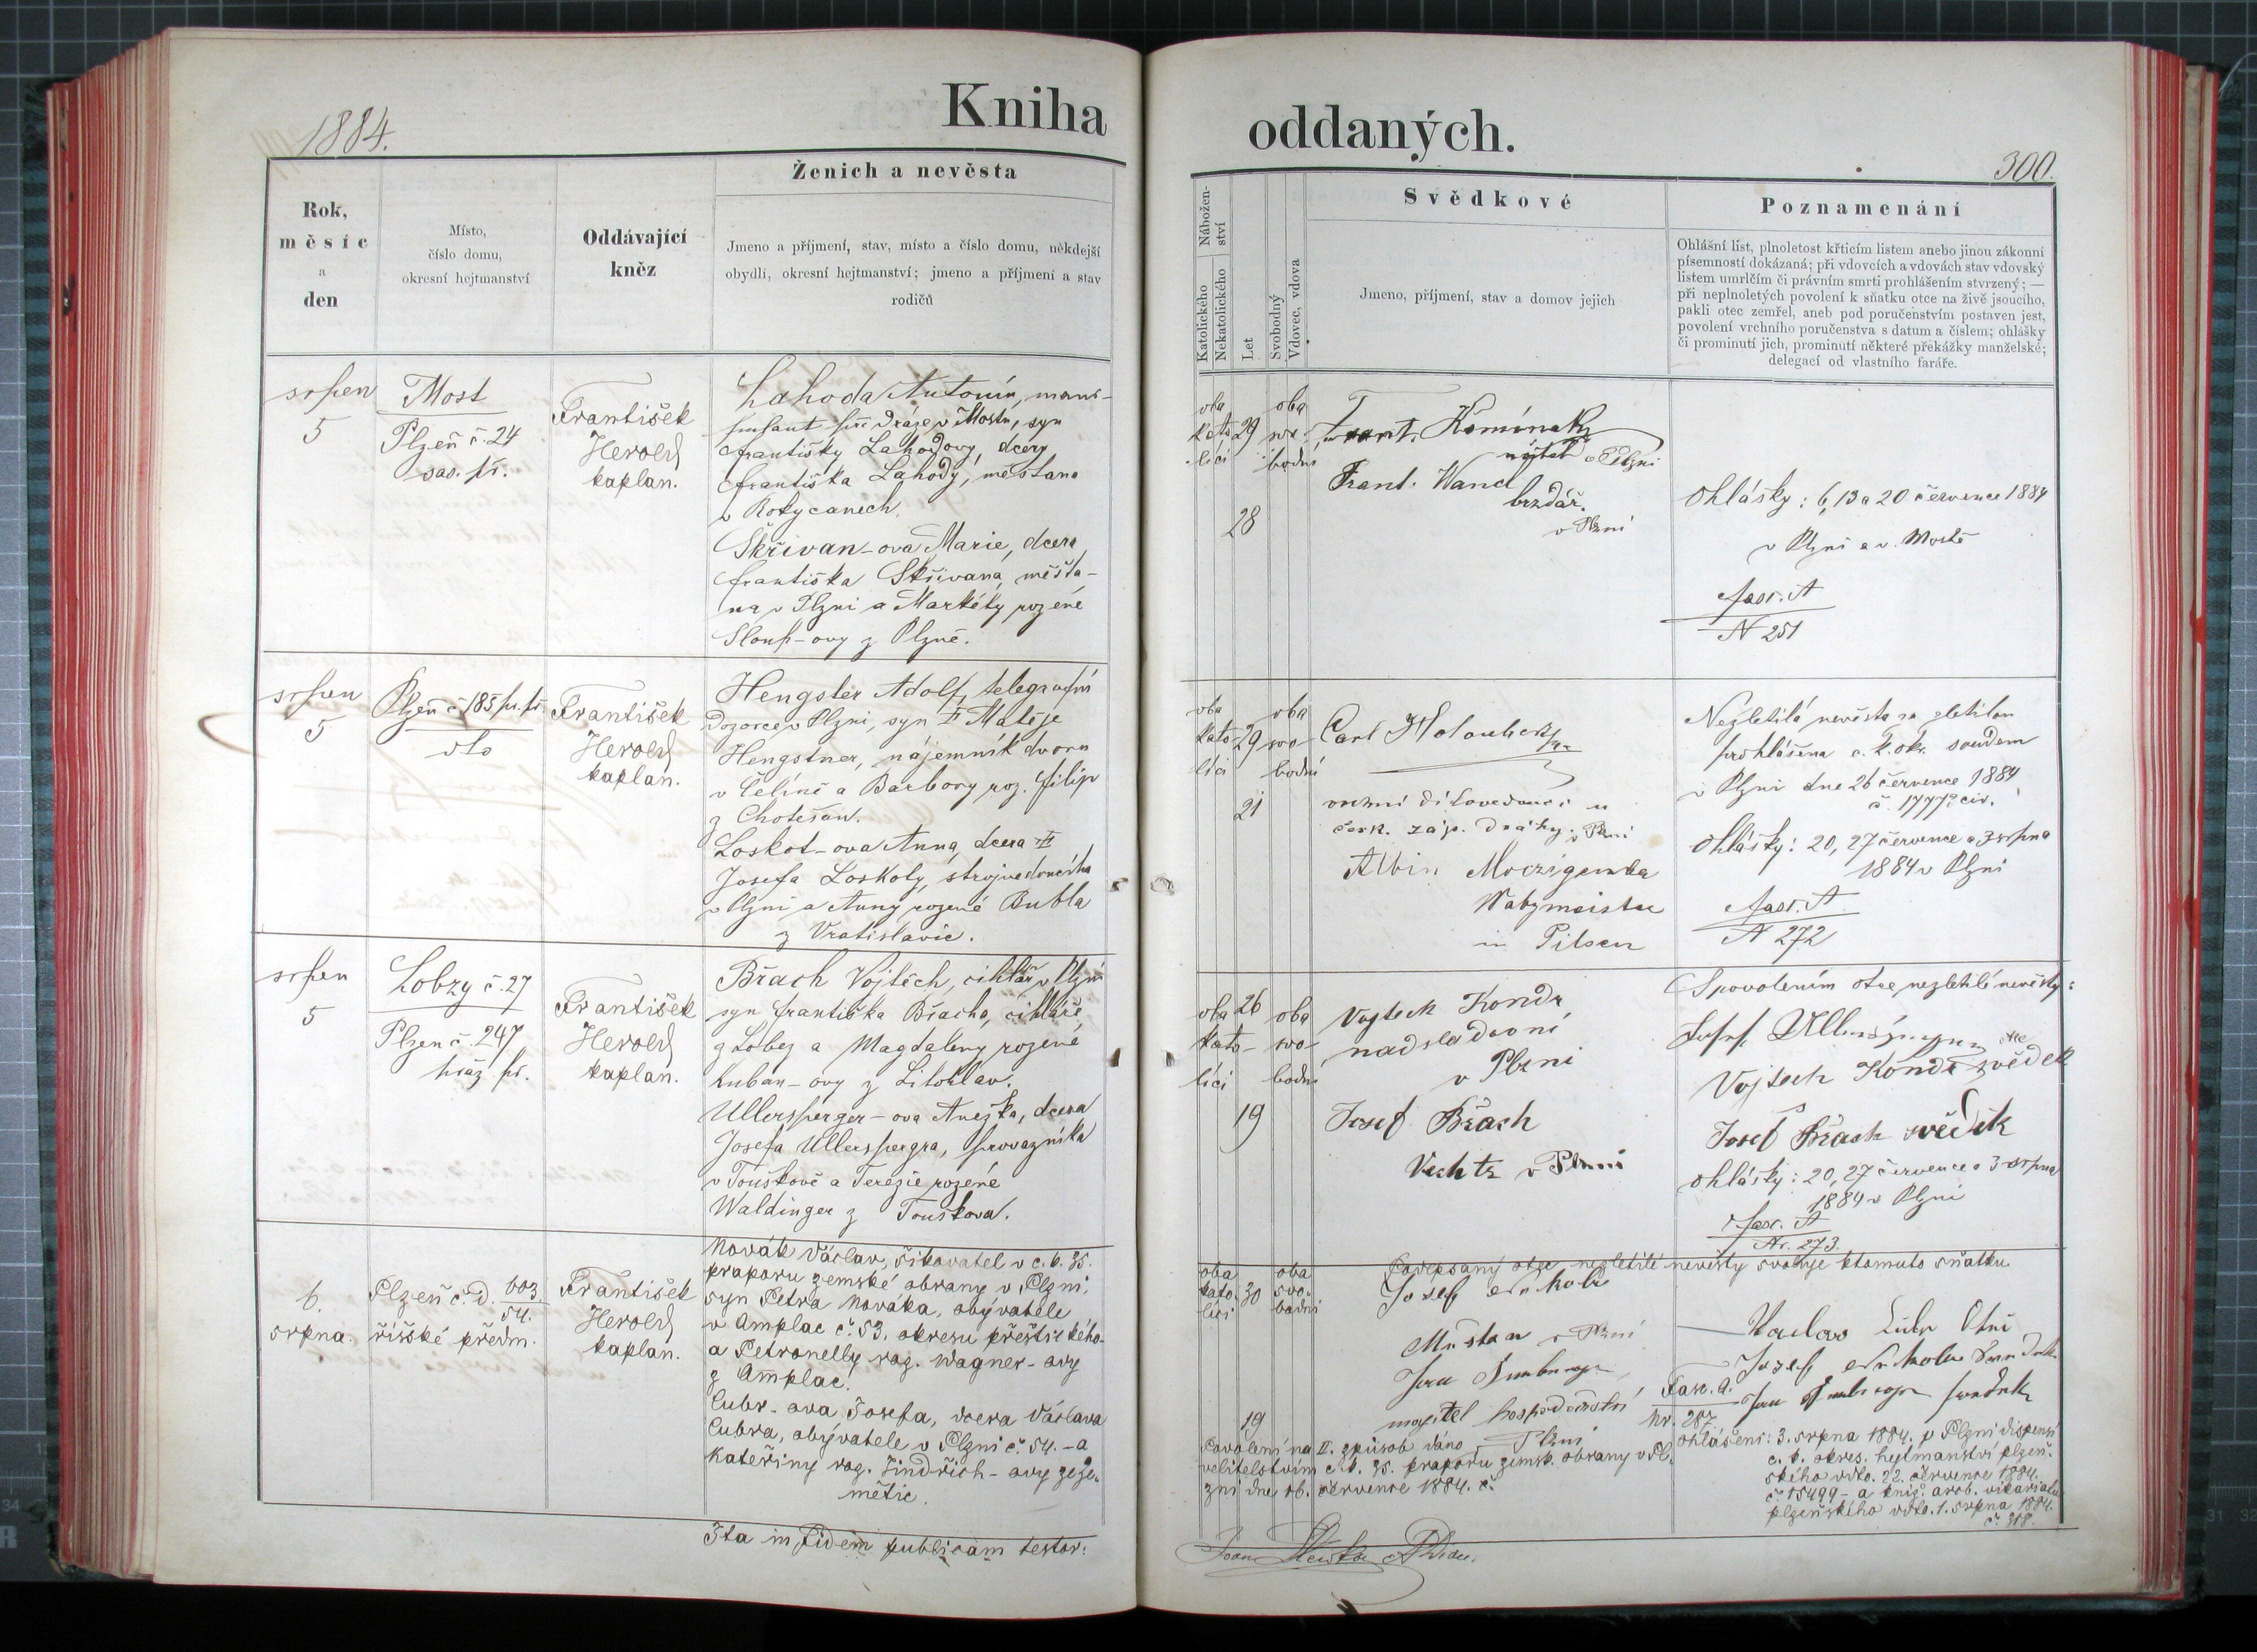 1884.
Kniha
oddaných.
300.
Rok,
měsíc
a
den
Místo,
číslo domu,
okresní hejtmanství
Oddávající
kněz
Ženich a nevěsta
Jmeno a příjmení, stav, místo a číslo domu, někdejší
obydlí, okresní hejtmanství; jmeno a příjmení a stav
rodičů
Nábožen-
ství
Katolického
Nekatolického
Let
Svobodný
Vdovec, vdova
Svědkové
Jmeno, příjmení, stav a domov jejich
Poznamenání
Ohlášní líst, plnoletost křticím listem anebo jinou zákonní
písemností dokázaná; při vdovcích a vdovách stav vdovský
listem umrlčím či právním smrti prohlášením stvrzený; —
při neplnoletých povolení k sňatku otce na živě jsoucího,
pakli otec zemřel, aneb pod poručenstvím postaven jest,
povolení vrchního poručenstva s datum a číslem; ohlášky
či prominutí jich, prominutí některé překážky manželské;
delegací od vlastního faráře.
srpen
5
Most
Plzeň č. 24
sas. př.
František
Herold
kaplan.
Lahoda Antonín, mani-
pulant při dráze v Mostu, syn
Františky Lahodovy, dcery
Františka Lahody, měštana
v Rokycanech.
Skřivan-ova Marie, dcera
Františka Skřivana, měšťa-
na v Plzni a Markéty rozené
Sloup-ovy z Plzně.
oba
kato-
líci
29
28
oba
svo-
bodni
Frant. Komínek
v Plzni
Frant. Wand
brzdář.
v Plzni
Ohlášky: 6, 13 a 20 července 1884
v Plzni a v. Mostě
fasc. A
N 251
srpen
5
Plzeň č 185 pr. př
dto
František
Herold
kaplan.
Hengster Adolf, telegrafní
dozorce v Plzni, syn Matěje
Hengstner, nájemník dvoru
v Čelíně a Barbory roz. Filip
z Chotěšan.
Loskot-ova Anna, dcera
Josefa Loskoty, strojvedoucího
v Plzni a Anny rozené Bubla
z Vratislavic.
oba
kato-
líci
29
21
oba
svo-
bodní
Carl Holoubek
česk. záp. dráhy v Plzni
Albin Moczigemba
in Pilsen
Nezletilá nevěsta za zletilou
prohlášena c. k. okr. soudem
v Plzni dne 26 července 1884
č. 17772 civ.
Ohlášky: 20, 27 července a 3 srpna
1884 v Plzni
fasc. A.
N 272
srpen
5
Lobzy č. 27
Plzeň č. 247
praž př.
František
Herold
kaplan.
Břach Vojtěch, cihlář v Plzni
syn Františka Břacha, cihláře,
z Lobez a Magdaleny rozené
Kuban-ovy z Litohlav.
Ullersperger-ova Anežka, dcera
Josefa Ullerspergra, provazníka
v Touškově a Terezie rozené
Waldinger z Touškova.
oba
kato-
líci
26
19
oba
svo-
bodní
Vojtech Kondr
nadsladovní
v Plzni
Josef Břach
v Plzni
S povolením otce nezletilé nevěsty:
Vojtech Kondr svědek
Josef Břach svědek
Ohlášky: 20, 27 července a 3 srpna
1884 v Plzni
fasc. A
Nr. 273.
6.
srpna.
Plzeň č. d. 603
54.
říšské předm.
František
Herold
kaplan.
Novák Václav, šikovatel v c. k. 35.
praporu zemské obrany v Plzni,
syn Petra Nováka, obyvatele
v Amplac č. 53. okresu přeštického
a Petronelly roz. Wagner-ovy
z Amplac.
Cubr-ova Josefa, dcera Václava
Cubra, obyvatele v Plzni č. 54. - a
Kateřiny roz. Jindřich-ovy ze Ze-
mětic.
oba
kato-
líci
30
19
oba
svo-
bodní
Josef
Měštan v Plzni
Jan
majitel hospodářství
v Plzni
Povolení na II. způsob dáno
velitelstvím c. k. 35. praporu zemsk. obrany v Pl-
zni dne 16. července 1884. č.
Podepsaný otec nezletilé nevěsty svoluje k tomuto sňatku
Fasc. A.
Nr. 287.
Ohlášení: 3. srpna 1884. v Plzni dispensí
c. k. okres. hejtmanství plzeň-
ského ddto. 22. července 1884.
č. 15499 - a kníž. arcib. vikariatu
plzeňského ddto. 1. srpna 1884.
č. 318.
Ita in fidem publicam testor: